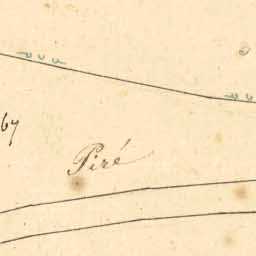 67
Piré